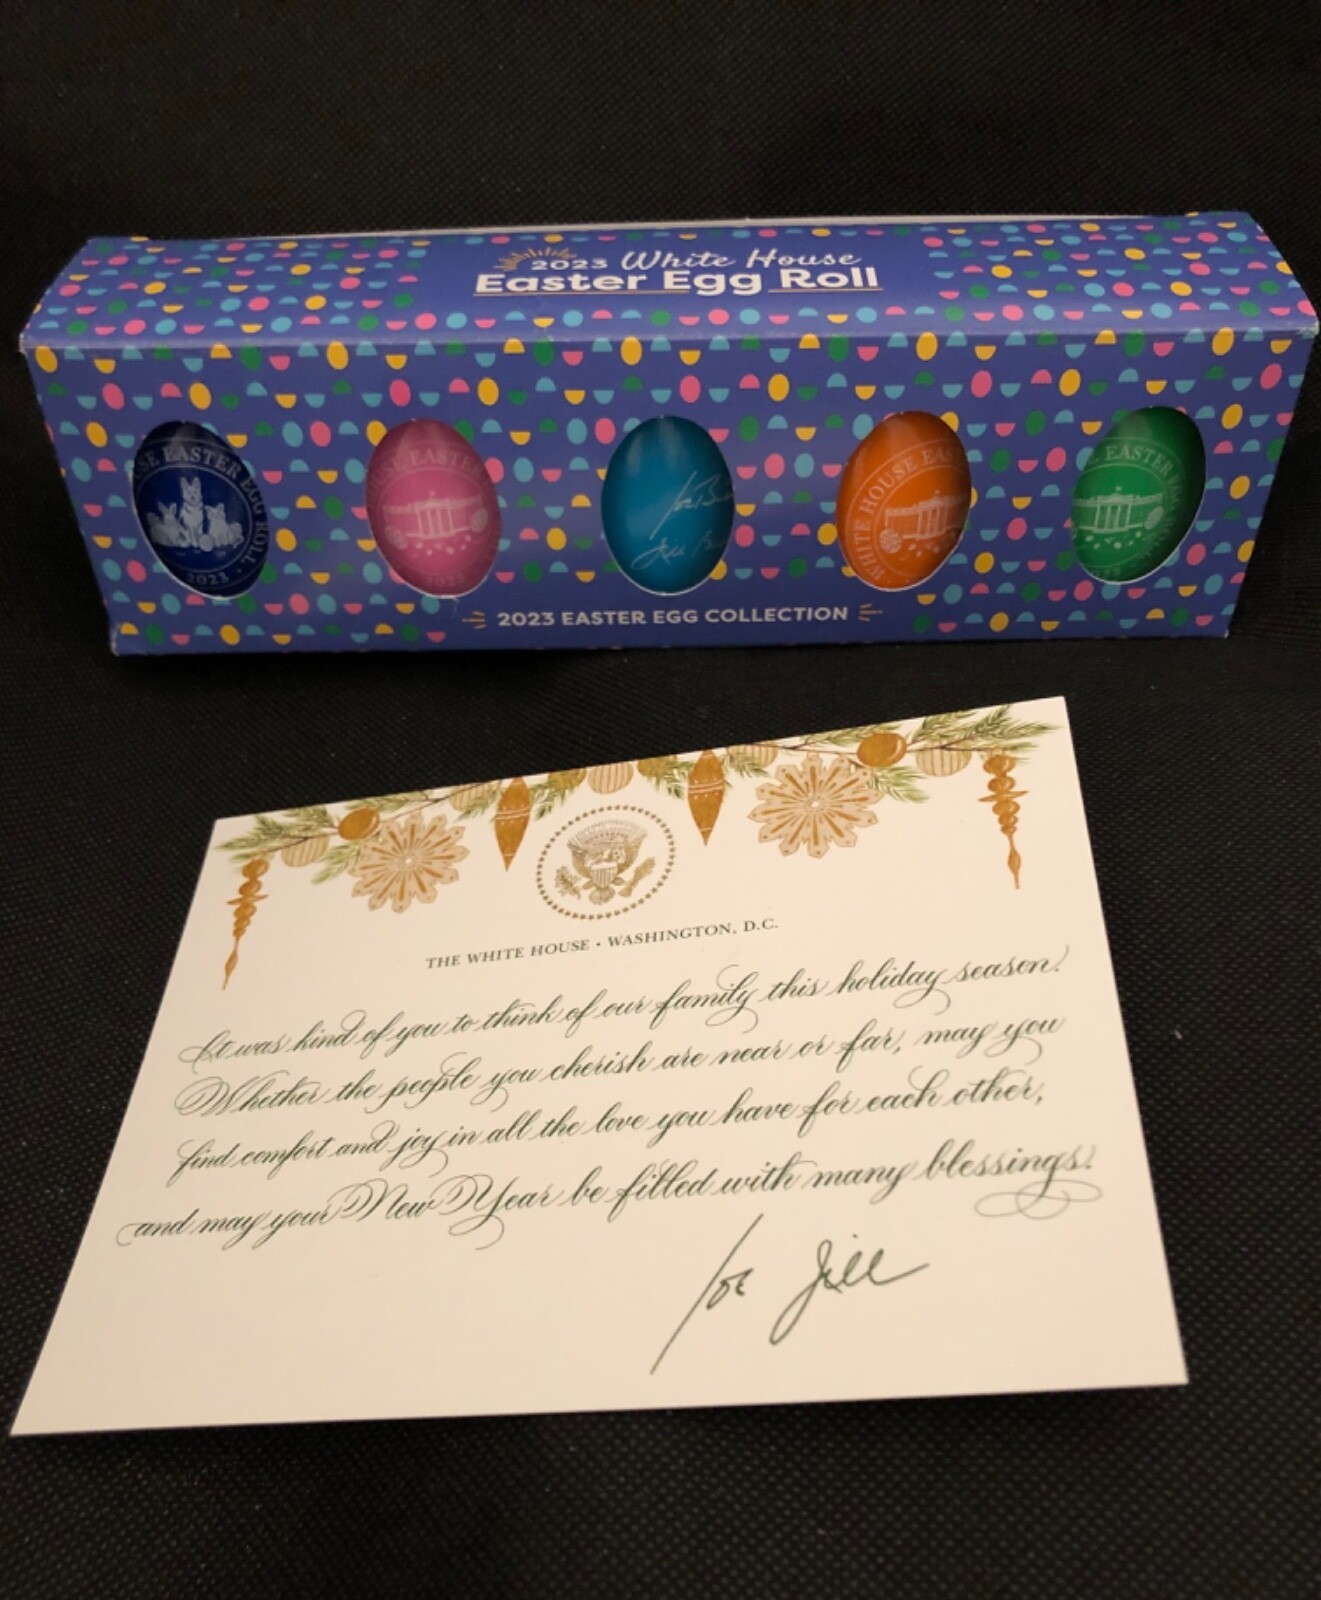 2023 White House
Easter Egg Roll
SE EASTER EGG ROLL
2023
SE EASTE
2023
Joe B
Jill B
WHITE HOUSE EAS
E EASTER EGG
2023 EASTER EGG COLLECTION
THE WHITE HOUSE • WASHINGTON, D.C.
It was kind of you to think of our family this holiday season.
Whether the people you cherish are near or far, may you
find comfort and joy in all the love you have for each other,
and may your New Year be filled with many blessings.
Joe Jill